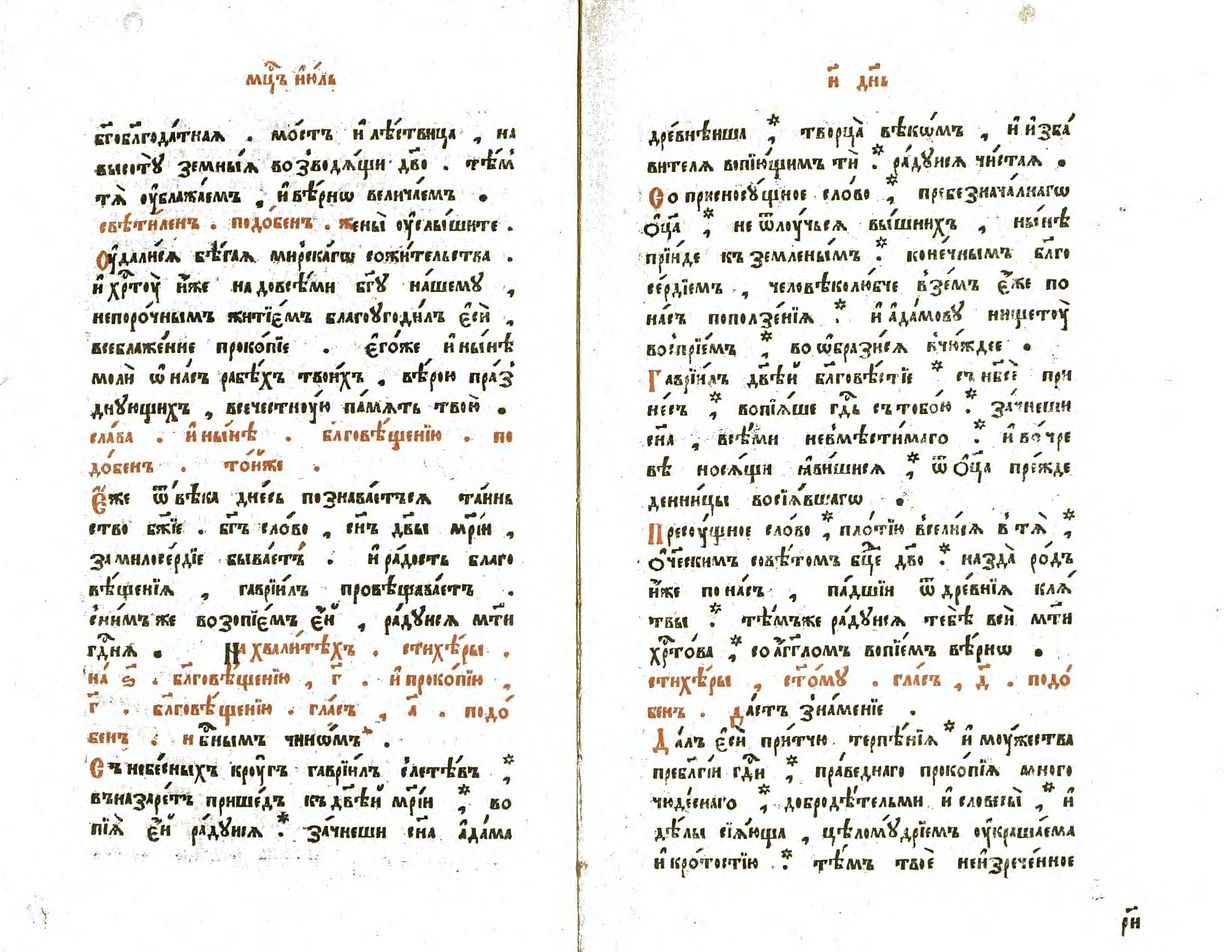 мц҃ъ і҆ю́ль
бг҃облгода́тная . мо́стъ и҆ лѣ́ствица , на
высотꙋ̀ земны́ѧ возводѧ́щи дв҃о . тѣ́м̾
тѧ̀ ᲂу҆блажа́емъ , и҆ вѣ́рнѡ велича́емъ .
свѣти́ленъ . подо́бен . жены̀ ᲂу҆слы́шите .
Оу҆дали́сѧ бѣ́гаѧ мирска́гѡ сожи́тельства .
и҆ хрⷭ҇тоу̀ и҆́же надовсѣ́ми бг҃ꙋ на́шемꙋ ,
непоро́чнымъ житїе́мъ благоугоди́лъ є҆сѝ ,
всеблаже́нне проко́пїе . є҆го́же и҆ ны́нѣ
молѝ ѡ҆ на́съ рабѣ́хъ твои́хъ . вѣ́рою пра́з
днꙋющихъ , всечестнꙋ́ю па́мѧть твою̀ .
сла́ва . и҆ ны́нѣ . блгⷭ҇овѣ́щенїю . по
до́бенъ . то́йже .
Є҆́же ѿ вѣ́ка дне́сь познава́етсѧ та́инь
ство бж҃їе . бг҃ъ сло́во , сн҃ъ дв҃ы мр҃і́и ,
за милосе́рдїе быва́етъ . и҆ ра́дость благо
вѣ́щенїѧ , гаврїи́лъ провѣщава́етъ .
сни́мъже возопїе́мъ є҆́й , ра́дꙋисѧ мт҃и
гдⷭ҇нѧ . На хвали́тѣхъ . стихе́ры .
на ѕ҃ . блгⷭ҇овѣ́щенїю , г҃ . и҆ проко́пїю ,
г҃ . блгⷭ҇овѣ́щенїю . гла́съ , а҃ . подо́
бенъ . нбⷭ҇ным̾ъ чино́мъ .
Съ небе́сныхъ кроу́гъ гаврїи́лъ слетѣ́въ *
въ назаре́тъ прише́дъ къ дв҃ѣй мр҃і́и * во
пїѧ̀ є҆́й ра́дꙋисѧ * зачне́ши сн҃а а҆да́ма
и҃ дн҃ь
дре́внѣиша * творца̀ вѣкѡ́мъ , и҆ и҆зба́
вителѧ вопїю́щимъ ти * ра́дꙋисѧ чи́стаѧ .
Со присносу́щное сло́во * пребезнача́лнагѡ
Ѻ҆ц҃а̀ * не ѿлоу́чьсѧ вы́шнихъ , ны́нѣ
прїи́де къ земле́нымъ * коне́чнымъ бл҃го
се́рдїемъ , человѣколю́бче взе́мъ є҆́же по
на́съ поползе́нїѧ * и҆ а҆да́мовꙋ нищетоу̀
воспрїе́мъ * во ѡ҆бра́зисѧ в̾чю́ждее .
Гаврїи́лъ дв҃ѣй блгⷭ҇овѣ́стїе * съ нб҃сѐ при
не́съ * вопїѧ́ше гдⷭ҇ь съ тобо́ю * зачне́ши
сн҃а , всѣ́ми невмѣсти́маго * и҆ во́ чре
вѣ носѧ́щи ꙗ҆ви́шисѧ * ѿ Ѻ҆ц҃а̀ пре́жде
денни́цы восїѧ́вшагѡ .
Пресоу́щное сло́во * пло́тїю все́лисѧ в̾ тѧ̀ *
Ѻ҆ч҃ескимъ совѣ́томъ бц҃е дв҃о * назда̀ ро́дъ
и҆́же по на́съ , па́дшїи ѿ дре́внїѧ клѧ́
твы * тѣ́мъже ра́дꙋисѧ тебѣ̀ всѝ мт҃и
хрⷭ҇то́ва * со а҆́гг҃ломъ вопїе́мъ вѣ́рнѡ .
стихе́ры , ст҃о́мꙋ . гла́съ , д҃ . подо́
бенъ . да́стъ зна́менїе .
Да́лъ є҆сѝ при́тчю терпѣ́нїѧ * и҆ моу́жества
пребл҃гі́и гдⷭ҇и * пра́веднаго проко́пїѧ много
чюде́снаго * добродѣ́тельми и҆ словесы̀ * и҆
дѣ́лы сїѧ́юща , цѣломꙋ́дрїемъ ᲂу҆краша́ема
и҆ кро́тостїю * тѣ́мъ твоѐ неизрече́нное
ри҃